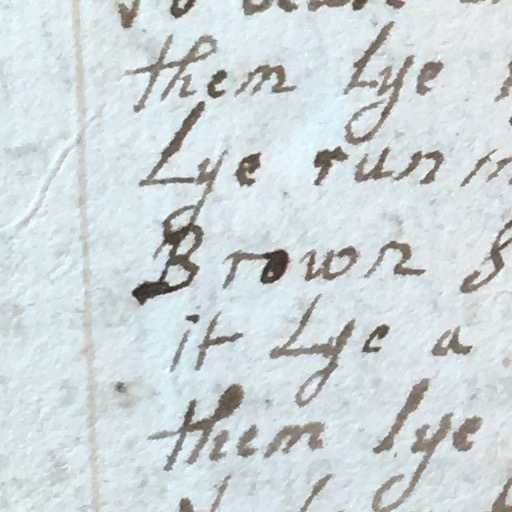 them Lye
Lye run
Brown
it Lye a
them lye